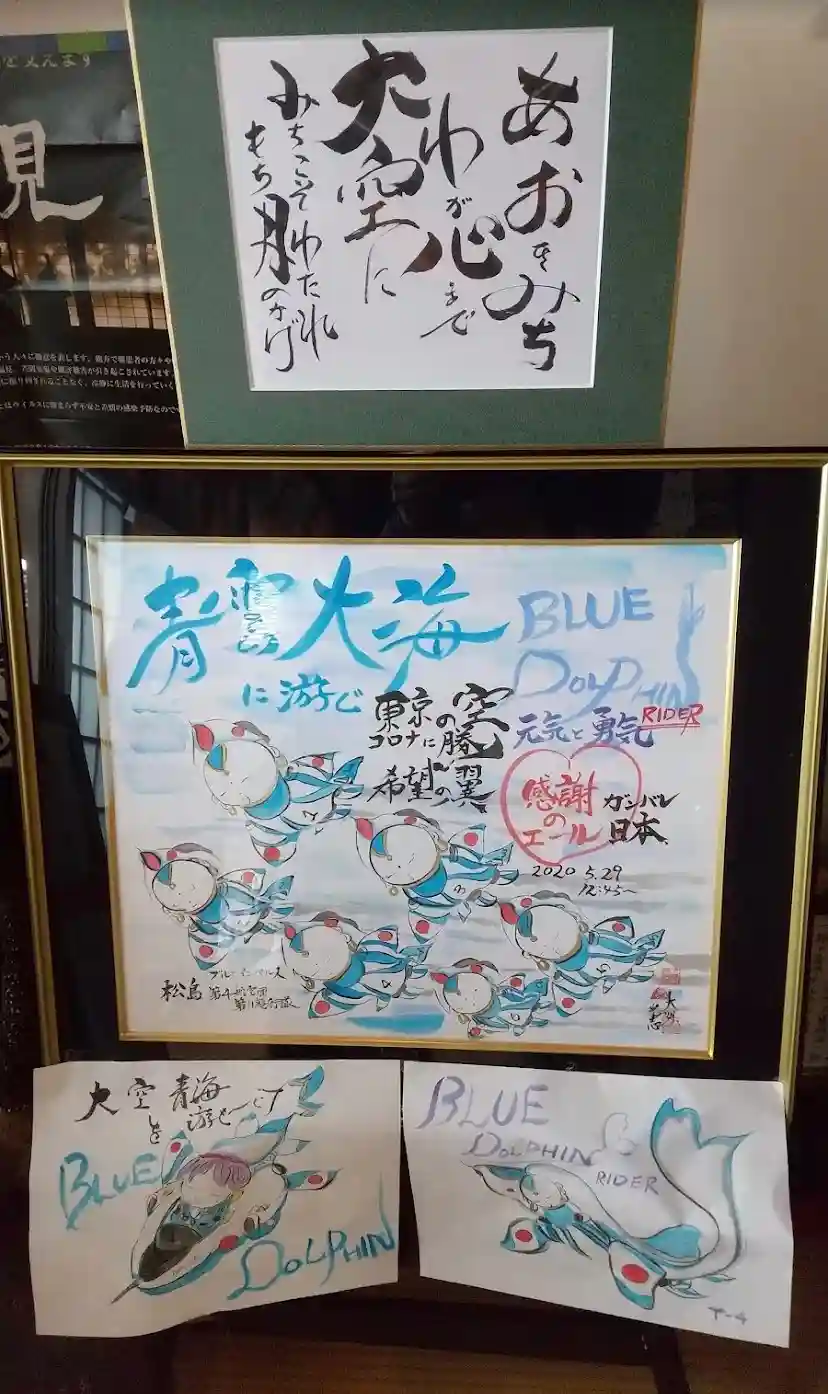 見
あおきみち
わが心まで
大空に
みちこそわたれ
もち月のかげ
青雲大海
に游ぶ
BLUE
DOLPHIN
RIDER
元気と勇気
東京の空
コロナに勝つ
希望の翼
感謝
の
エール
ガンバレ
日本
2020 5.29
12:45~
松島
ブルーインパルス
第4航空団
第11飛行隊
大空
青海
を
BLUE
DOLPHIN
BLUE
DOLPHIN
RIDER
T-4